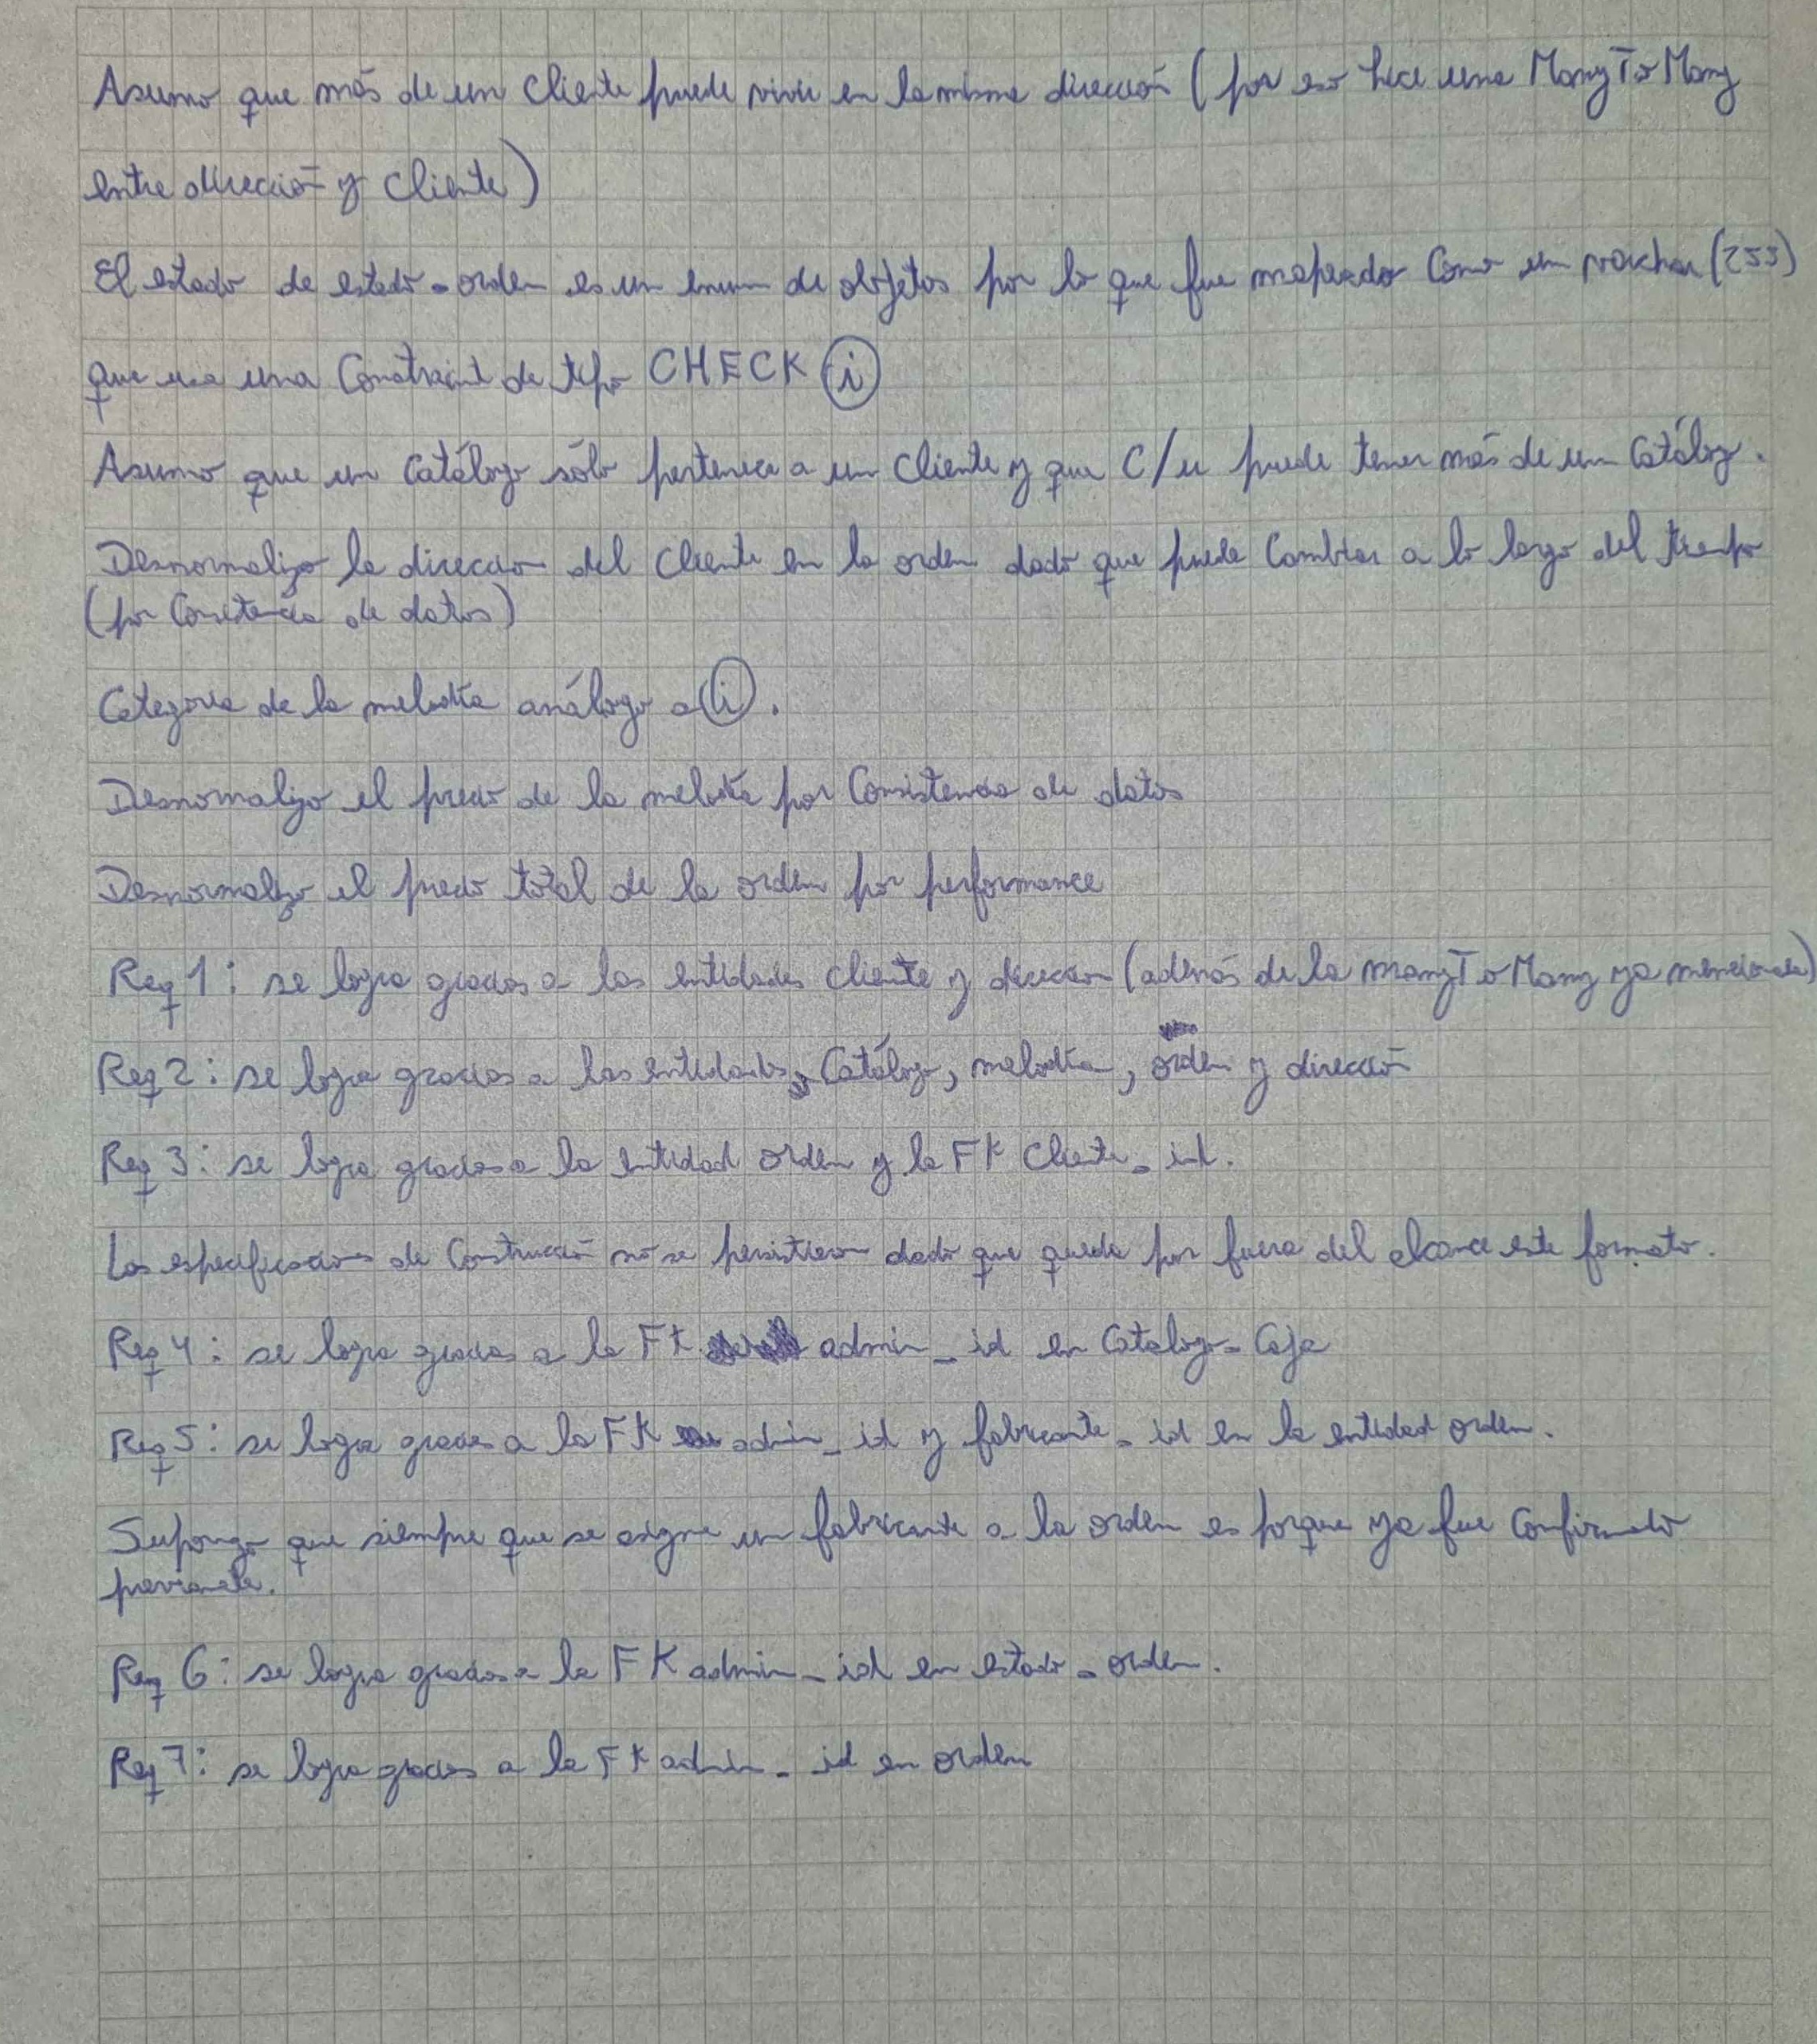 Asumo que más de un cliente puede vivir en la misma dirección (por eso hice una ManyToMany
entre dirección y cliente)
El estado de estado_orden es un enum de objetos por lo que fue mapeado como un varchar(255)
que usa una constraint de tipo CHECK (i)
Asumo que un catálogo sólo pertenece a un cliente y que c/u puede tener más de un catálogo.
Desnormalizo la direccion del cliente en la orden dado que puede cambiar a lo largo del tiempo
(por consistencia de datos)
Categoria de la melodía análogo a (i).
Desnormalizo el precio de la melodía por consistencia de datos
Desnormalizo el precio total de la orden por performance
Req 1: se logra gracias a las entidades cliente y direccion (además de la manyToMany ya mencionada)
Req 2: se logra gracias a las entidades catálogo, melodía, orden y dirección
Req 3: se logra gracias a la entidad orden y la FK cliente_id.
Las especificaciones de construcción no se persistieron dado que queda por fuera del alcance este formato.
Req 4: se logra gracias a la FK admin_id en catalogo_caja
Req 5: se logra gracias a la FK admin_id y fabricante_id en la entidad orden.
Supongo que siempre que se asigne un fabricante a la orden es porque ya fue confirmado
previamente.
Req 6: se logra gracias a la FK admin_id en estado_orden.
Req 7: se logra gracias a la FK admin_id en orden